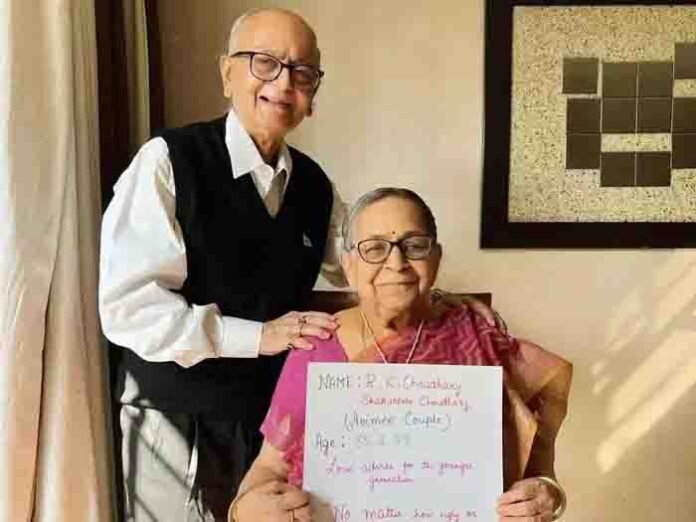 NAME: R. K. Choudhary
Choudhary
(Animer Couple)
Age: 85 & 83
Love advice for the younger
generation
No matter how ugly or